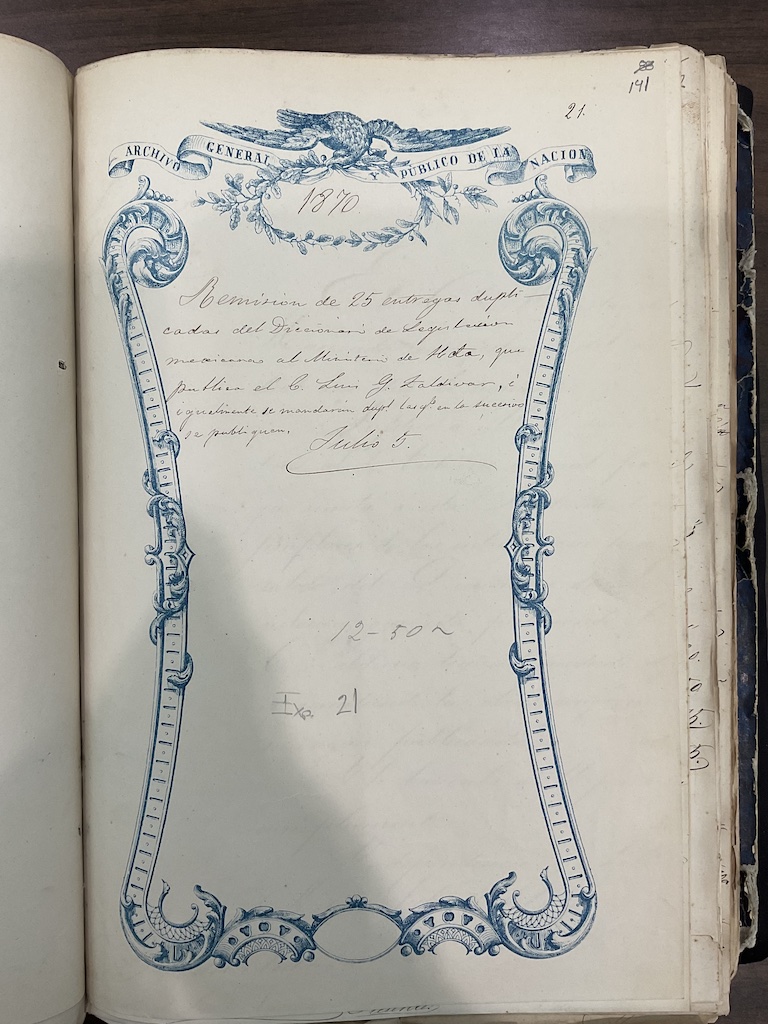 141
21.
ARCHIVO GENERAL Y PUBLICO DE LA NACION
1870.
Remision de 25 entregas dupli-
cadas del Diccionario de Legislacion
mexicana al Ministerio de que
publica el C. Luis G. Zaldivar, é
igualmente se mandarán dupl. las qe. en lo sucesivo
se publiquen.
Julio 5.
12-50
Exp. 21